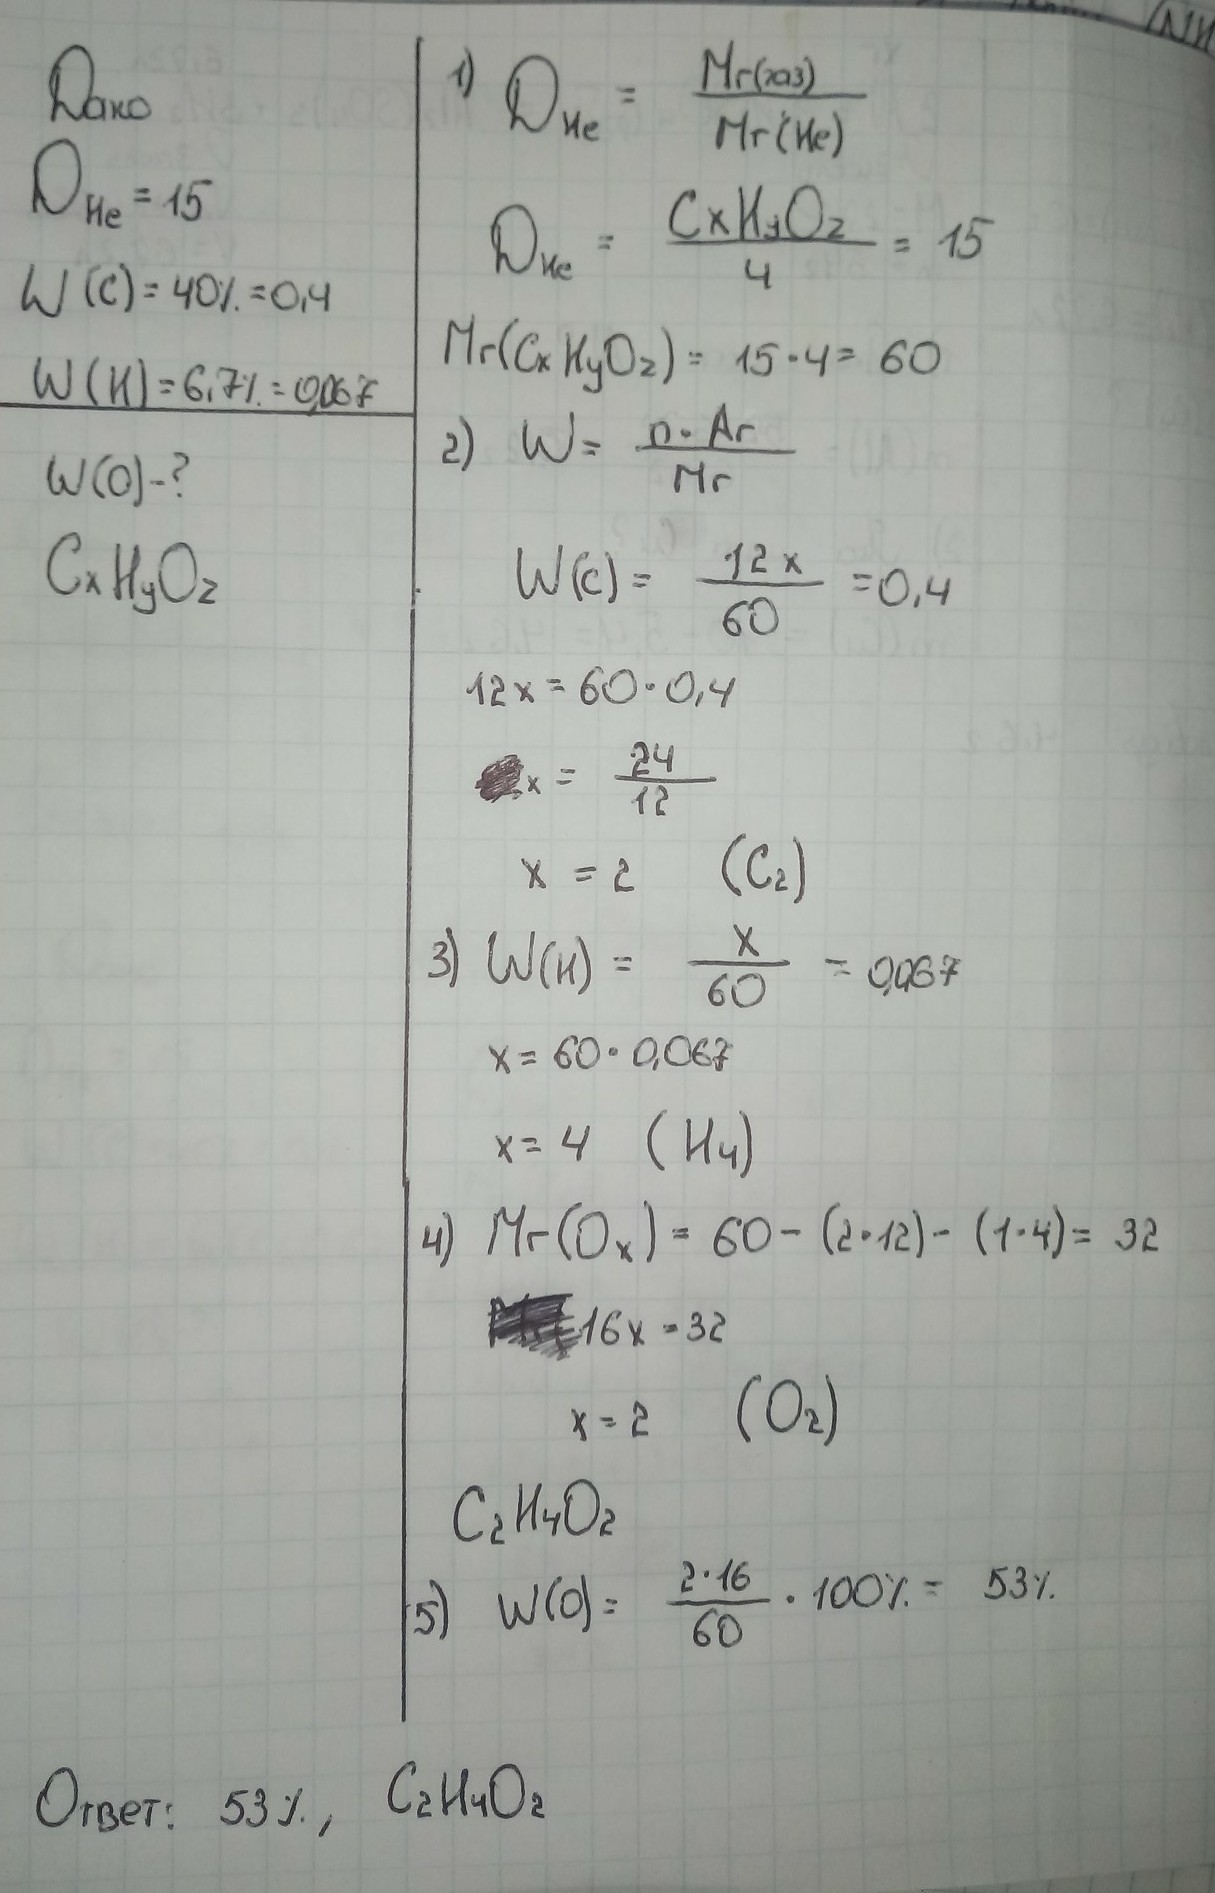 Дано
D He = 15
W(C) = 40% = 0,4
W(H) = 6,7% = 0,067
W(O) - ?
CxHyOz
1) D He = Mr(газ) / Mr(He)
D He = CxHyOz / 4 = 15
Mr(CxHyOz) = 15 · 4 = 60
2) W = n · Ar / Mr
W(C) = 12x / 60 = 0,4
12x = 60 · 0,4
x = 24 / 12
x = 2 (C2)
3) W(H) = x / 60 = 0,067
x = 60 · 0,067
x = 4 (H4)
4) Mr(Ox) = 60 - (2·12) - (1·4) = 32
16x = 32
x = 2 (O2)
C2H4O2
5) W(O) = 2·16 / 60 · 100% = 53%
Ответ: 53%, C2H4O2